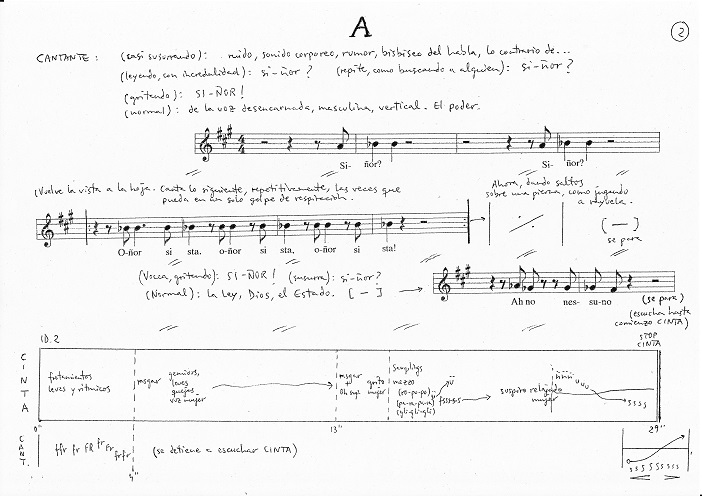 A
2
CANTANTE: (casi susurrando): ruido, sonido corporeo, rumor, bisbiseo del habla, lo contrario de...
(leyendo, con incredulidad): si-ñor? (repite, como buscando a alguien): si-ñor?
(gritando): SI-ÑOR!
(normal): de la voz desencarnada, masculina, vertical. El poder.
Si- ñor? Si- ñor?
(Vuelve la vista a la hoja. Canta lo siguiente, repetitivamente, las veces que
pueda en un solo golpe de respiración.
Ahora, dando saltos
sobre una pierna, como jugando
a rayuela.
[—]
se para
O-ñor si sta. o-ñor si sta, o-ñor si sta!
(Vocea, gritando): SI-ÑOR! (susurra): si-ñor?
(Normal): la Ley, Dios, el Estado. [—]
Ah no nes- su-no
(se para)
(escucha hasta
comienzo CINTA)
ID.2
STOP
CINTA
CINTA
frotamientos
leves y rítmicos
rasgar
gemidos,
leves
quejas
voz mujer
rasgar
+ grito
mujer
(ro-po-po)
(pa-ra-pa-ra)
(gli-gli-gli)
fssss
suspiro relajado
mujer
ssss
0" 13" 29"
CANT.
ffr fr FR fr fr frfr
(se detiene a escuchar CINTA)
4"
s s s s s s s s